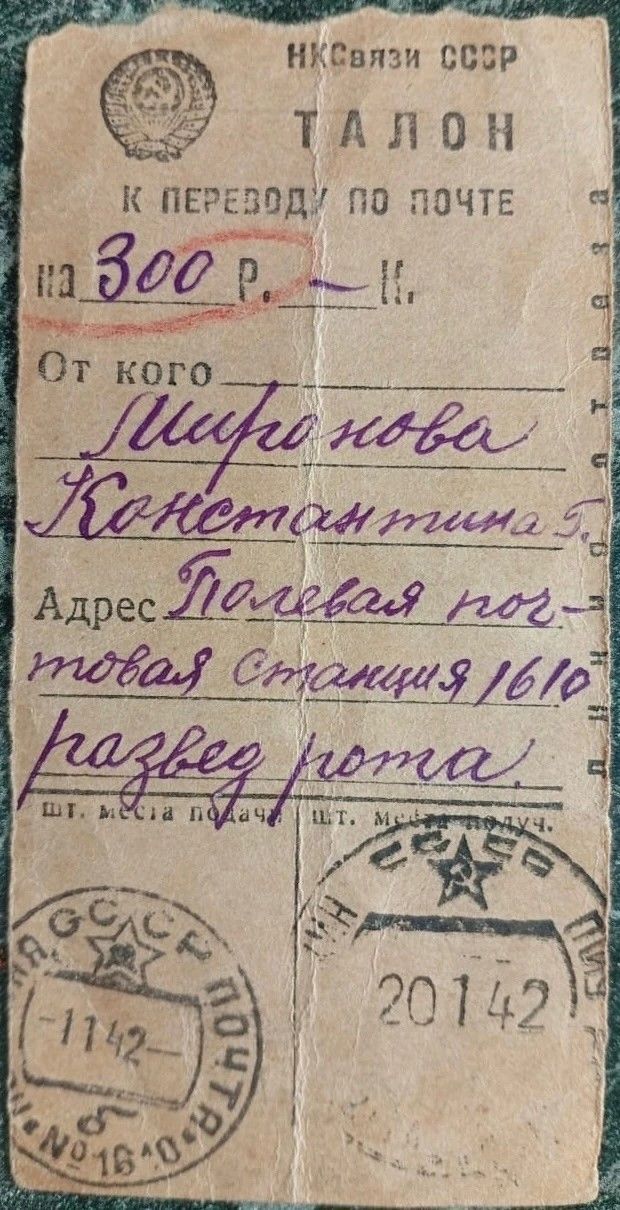 НКСвязи СССР
ТАЛОН
К ПЕРЕВОДУ ПО ПОЧТЕ
на 300 Р. – К.
От кого
Миронова
Константина Г.
Адрес Полевая поч-
товая станция 1610
развед рота.
шт. места подачи шт. места получ.
СССР
ПОЧТА
-1 1 42-
№ 1610
СССР
20 1 42
линия отреза